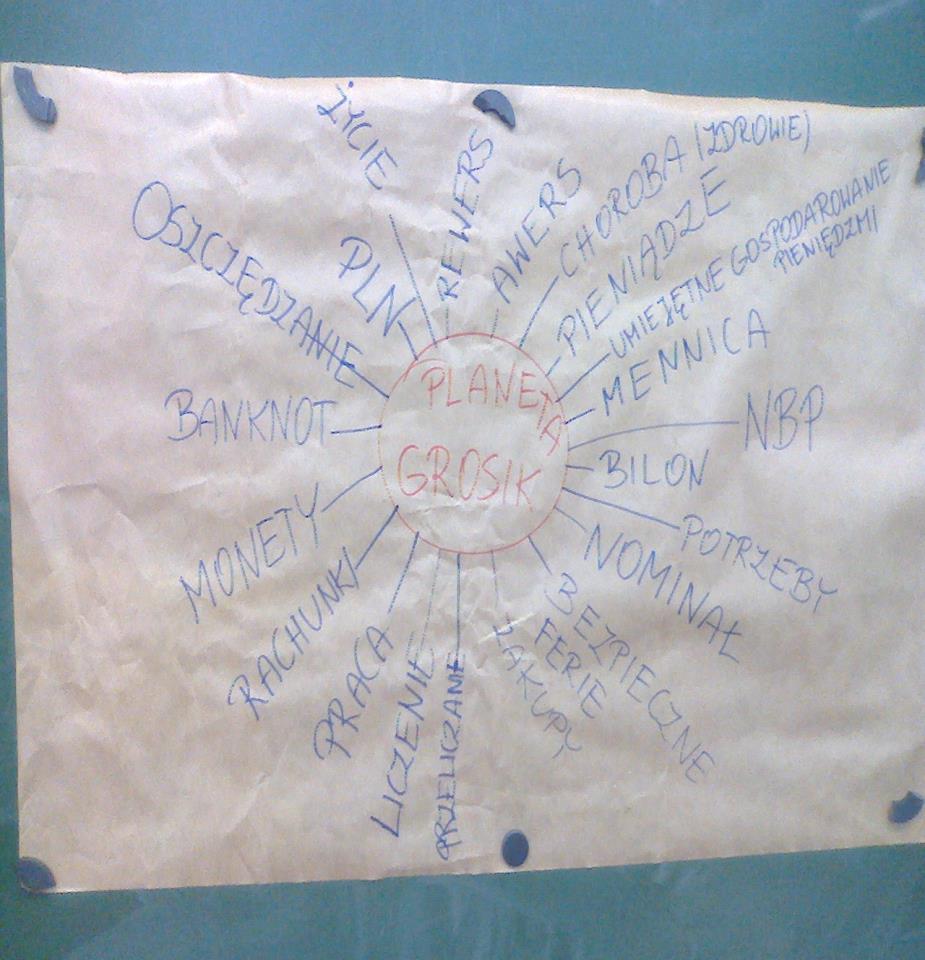 PLANETA
GROSIK
ŻYCIE
REWERS
AWERS
CHOROBA (ZDROWIE)
PIENIĄDZE
UMIEJĘTNE GOSPODAROWANIE
PIENIĘDZMI
MENNICA
NBP
BILON
POTRZEBY
NOMINAŁ
BEZPIECZNE
FERIE
ZAKUPY
PRZELICZANIE
LICZENIE
PRACA
RACHUNKI
MONETY
BANKNOT
OSZCZĘDZANIE
PLN